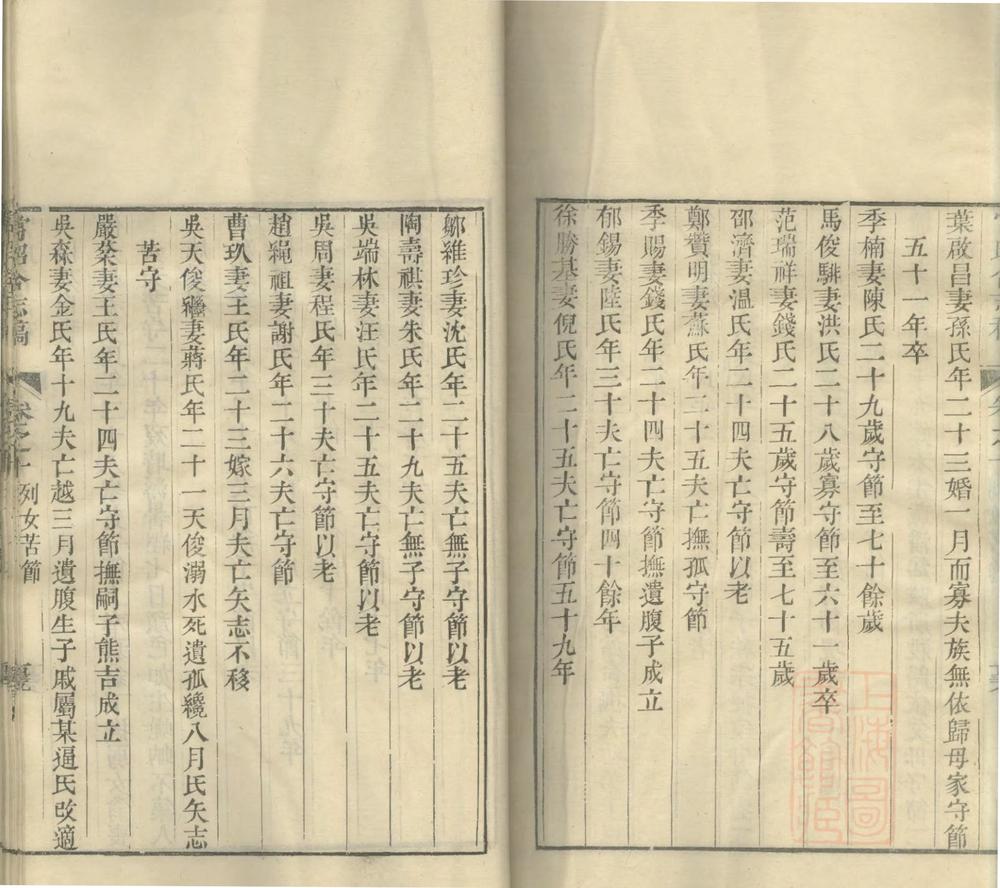 葉啟昌妻孫氏年二十三婚一月而寡夫族無依歸母家守節
五十一年卒
季楠妻陳氏二十九歲守節至七十餘歲
馬俊騈妻洪氏二十八歲寡守節至六十一歲卒
范瑞祥妻錢氏二十五歲守節壽至七十五歲
邵濟妻溫氏年二十四夫亡守節以老
鄭贊明妻蘇氏年二十五夫亡撫孤守節
季賜妻錢氏年二十四夫亡守節撫遺腹子成立
郁錫妻陸氏年三十夫亡守節四十餘年
徐勝基妻倪氏年二十五夫亡守節五十九年
鄒維珍妻沈氏年二十五夫亡無子守節以老
陶壽祺妻朱氏年二十九夫亡無子守節以老
吳端林妻汪氏年二十五夫亡守節以老
吳周妻程氏年三十夫亡守節以老
趙繩祖妻謝氏年二十六夫亡守節
曹玖妻王氏年二十三嫁三月夫亡矢志不移
吳天俊繼妻蔣氏年二十一天俊溺水死遺孤纔八月氏矢志
苦守
嚴棻妻王氏年二十四夫亡守節撫嗣子熊吉成立
吳森妻金氏年十九夫亡越三月遺腹生子戚屬某逼氏改適
常昭合志稿
列女苦節